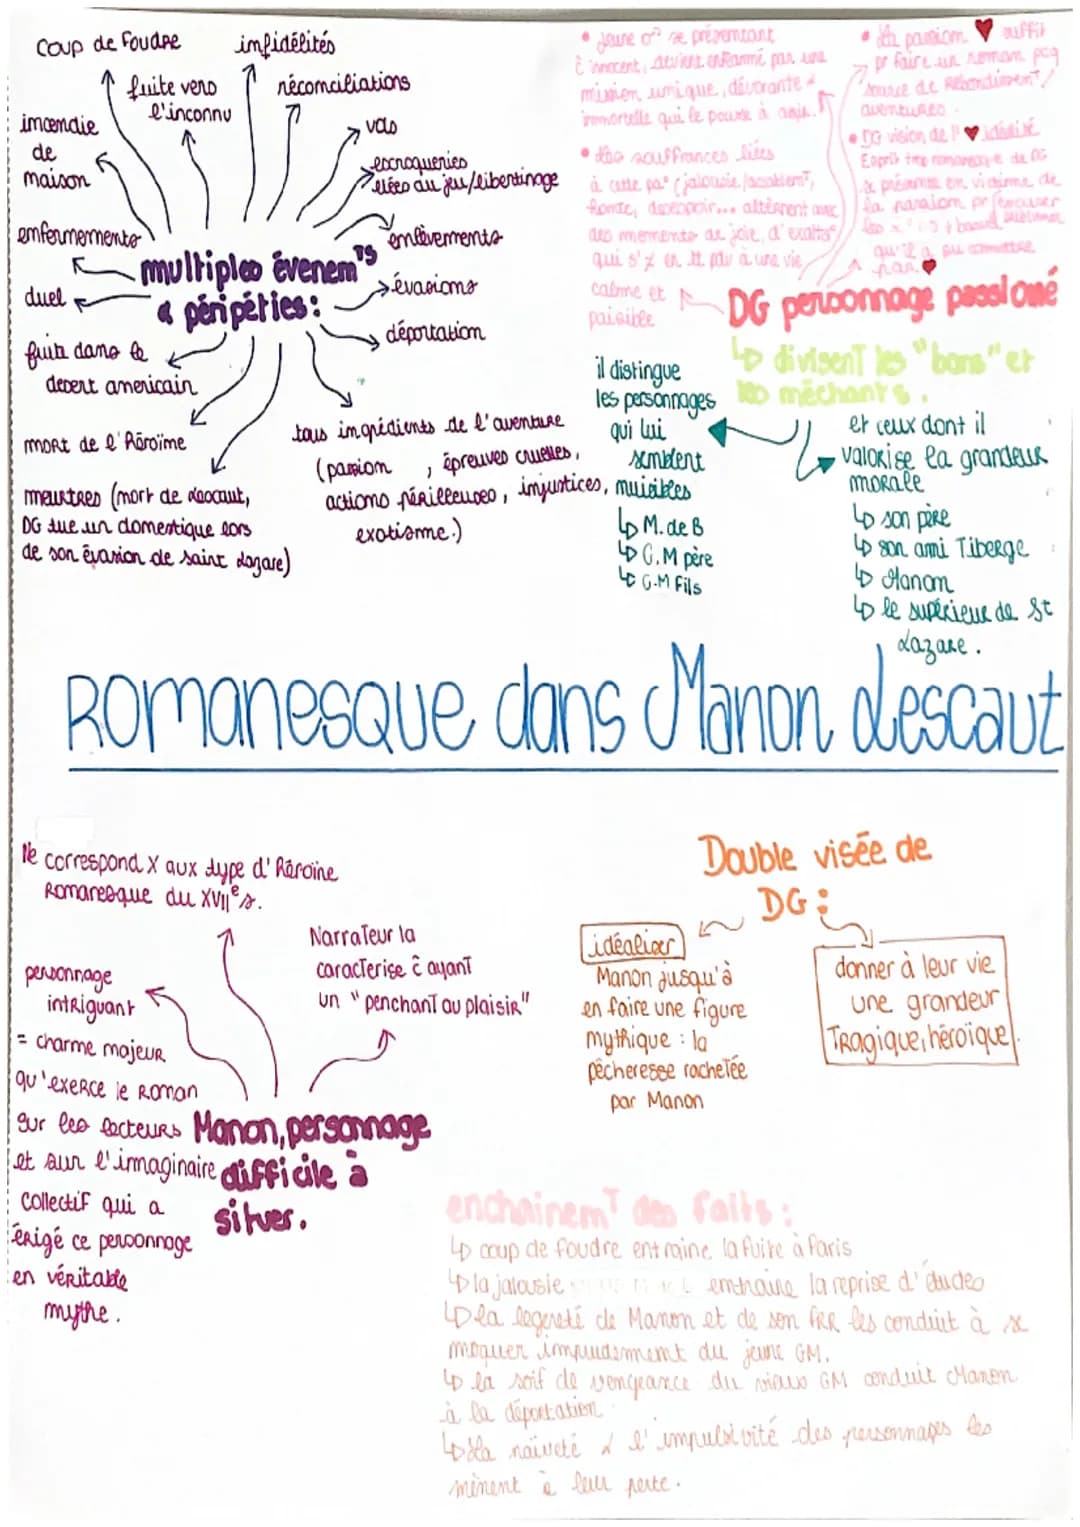 coup de foudre
infidélités
fuite vers
l'inconnu
réconciliations
incendie
de
maison
vols
escroqueries
liées au jeu/libertinage
enfermements
enlèvements
multiples évenem^ts
& péripéties :
duel
évasions
déportation
fuite dans le
desert americain
mort de l'héroïme
tous ingrédients de l'aventure
(passion , épreuves cruelles,
actions périlleuses, injustices,
exotisme.)
meurtres (mort de Lescaut,
DG tue un domestique lors
de son évasion de saint Lazare)
• Jeune o^o se présentant
c̄ innocent, devient enflammé par une
passion unique, dévorante &
immortelle qui le pousse à agir.
• Les souffrances liées
à cette pa° (jalousie/
honte, desespoir... alternent avec
des moments de joie, d'exalt°
qui s'≠ en tt pdv à une vie
calme et
paisible
• La passion ♥ suffit
pr faire un roman pcq
source de Rebondissem^t/
aventures.
• DG vision de l'♥ idéalisé
Esprit trop romanesque de DG
se présente en victime de
la passion pr
qu'il a pu commettre
par ♥
DG personnage passionné
↳ divisent les "bons" et
les méchants.
il distingue
les personnages
qui lui
semblent
nuisibles
↳ M. de B
↳ G.M père
↳ G.M Fils
et ceux dont il
valorise la grandeur
morale
↳ son père
↳ son ami Tiberge
↳ Manon
↳ le supérieur de St
Lazare.
Romanesque dans Manon Lescaut
Ne correspond X aux type d'héroïne
Romanesque du XVII^e s.
Narrateur la
caracterise c̄ ayant
un "penchant au plaisir"
personnage
intriguant
= charme majeur
qu'exerce le Roman
sur les lecteurs
et sur l'imaginaire
collectif qui a
érigé ce personnage
en véritable
mythe.
Manon, personnage
difficile à
situer.
Double visée de
DG :
idéaliser
Manon jusqu'à
en faire une figure
mythique : la
pécheresse rachetée
par Manon
donner à leur vie
une grandeur
Tragique, héroïque.
enchainem^t des faits :
↳ coup de foudre entraine la fuite à Paris
↳ la jalousie entraine la reprise d'études
↳ la legereté de Manon et de son FRR les conduit à se
moquer impudemment du jeune GM.
↳ la soif de vengeance du vieux GM conduit Manon
à la déportation
↳ La naïveté & l'impulsivité des personnages les
mènent à leur perte.